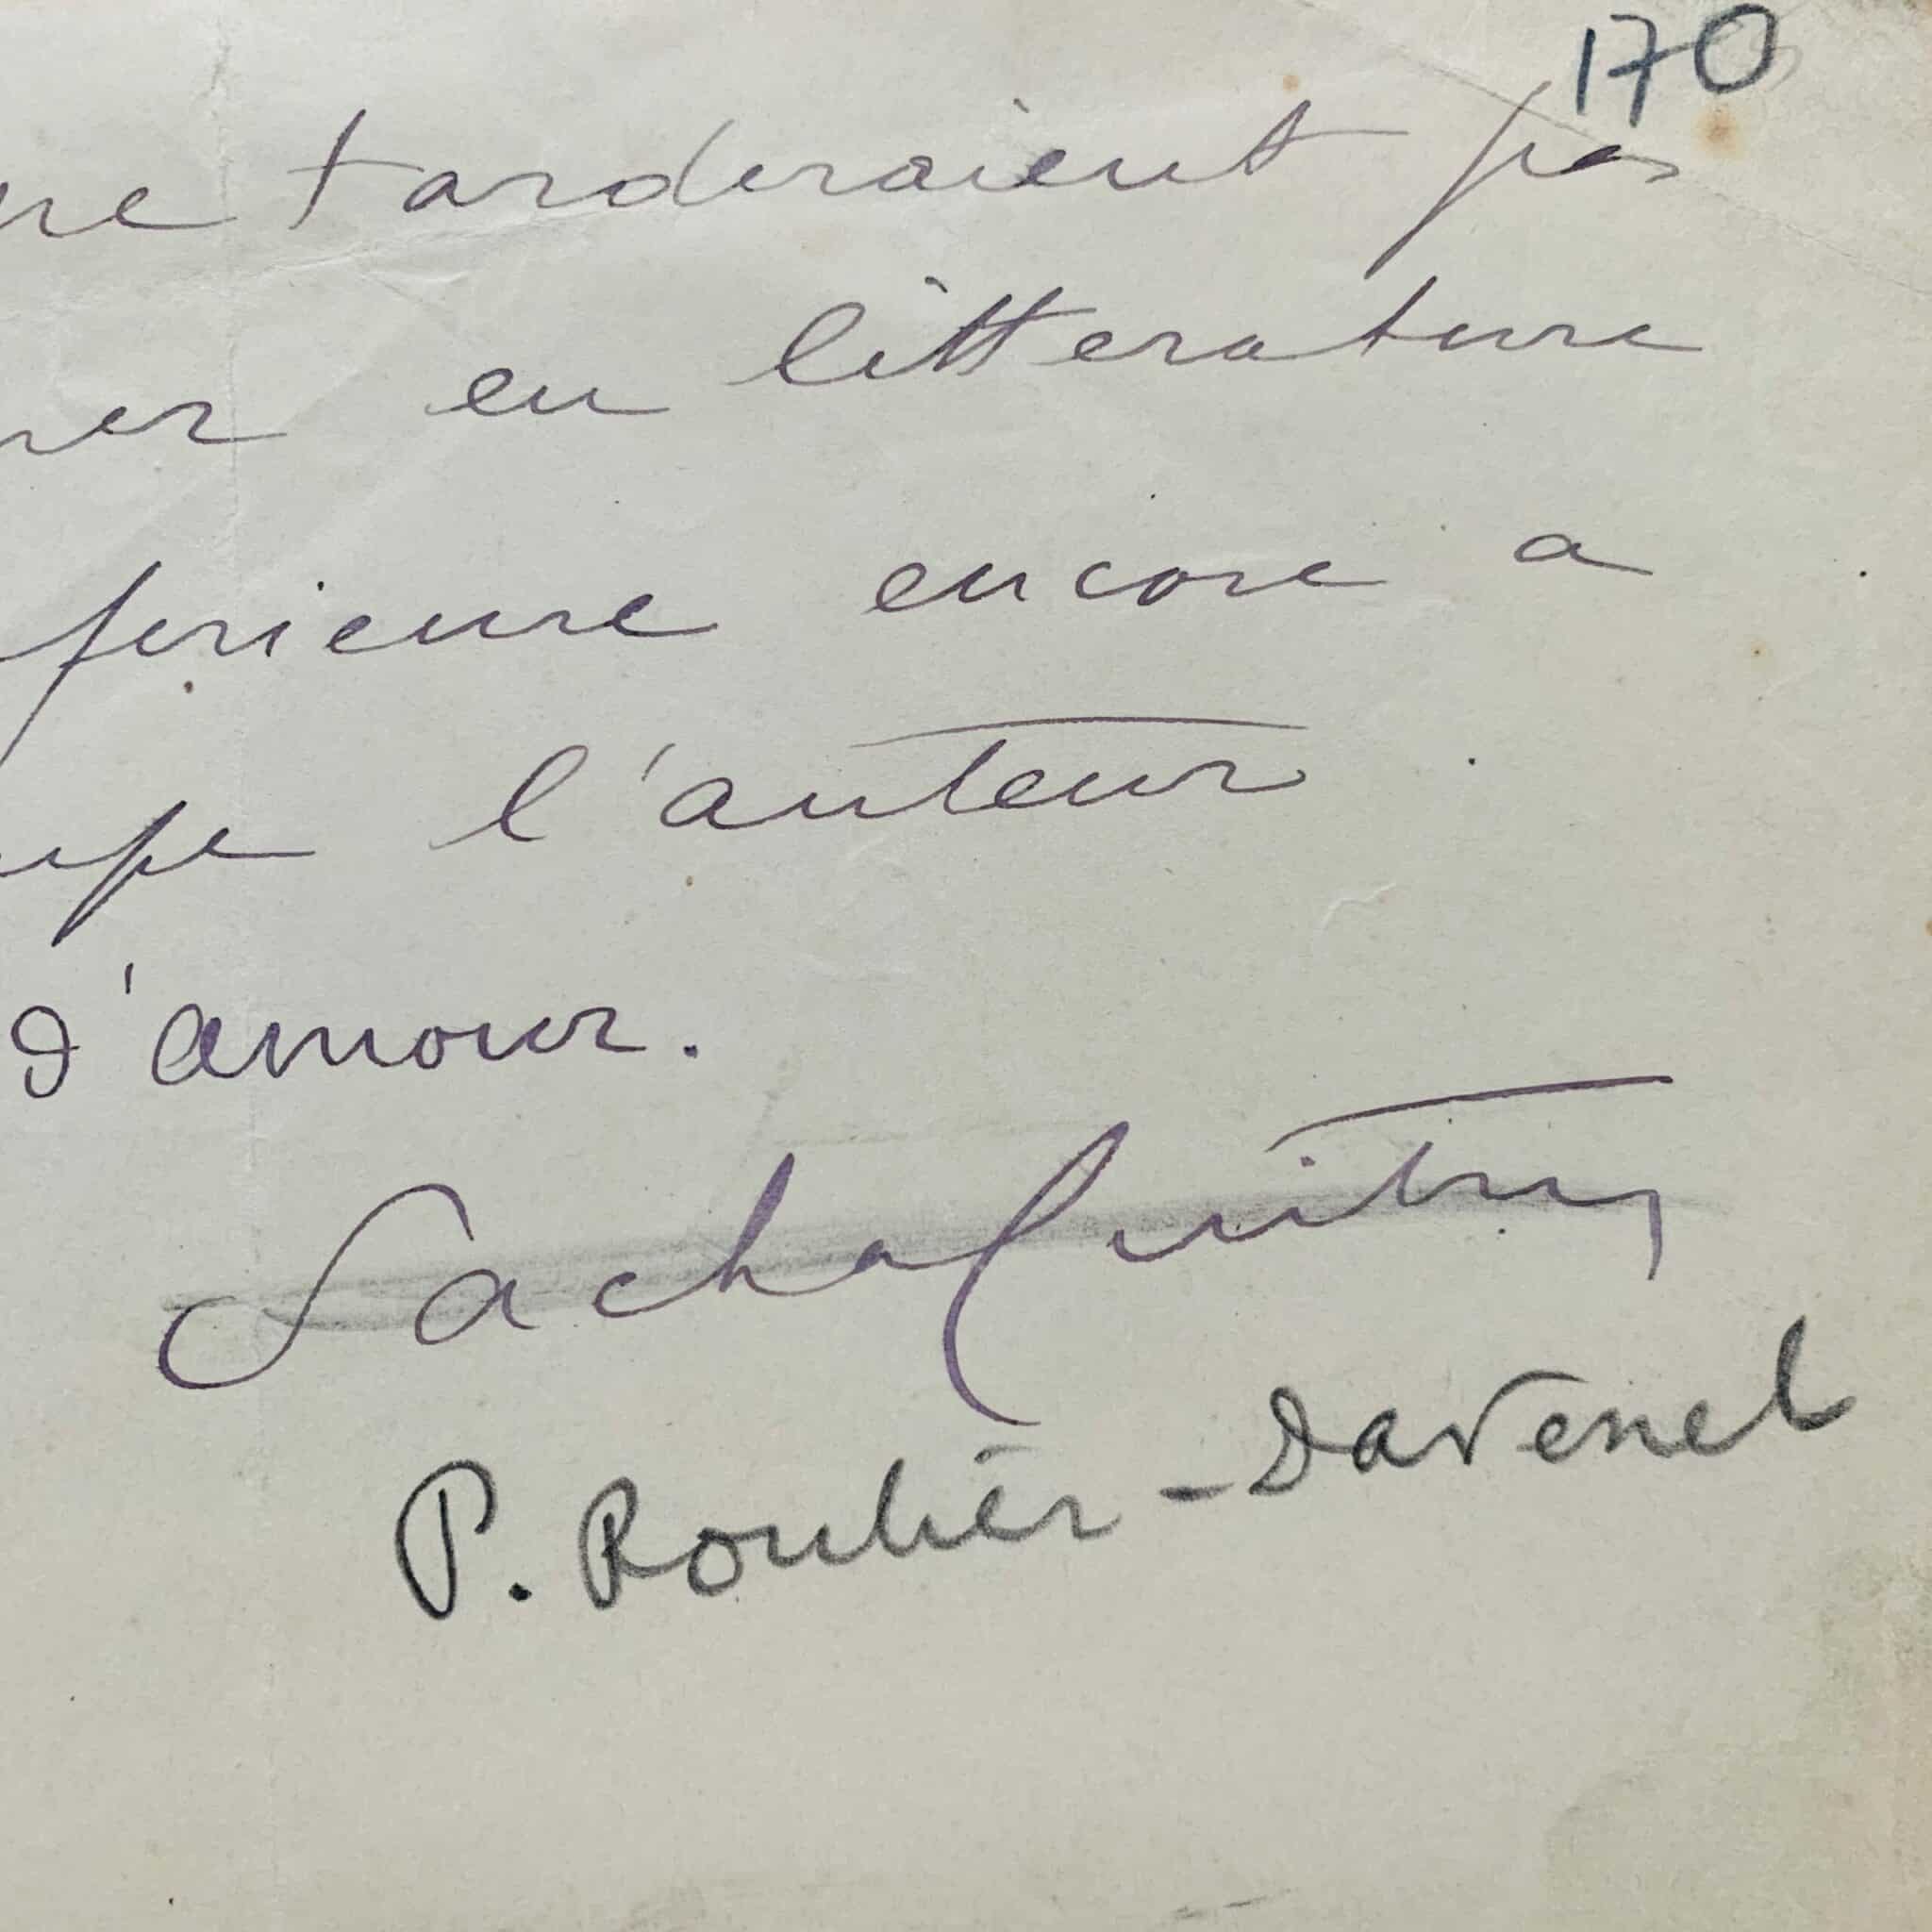 170
ne tarderaient pas
rer en litterature
ferieure encore a
upe l'auteur
d'amour.
Sacha Guitry
P. Rouher-Davenel